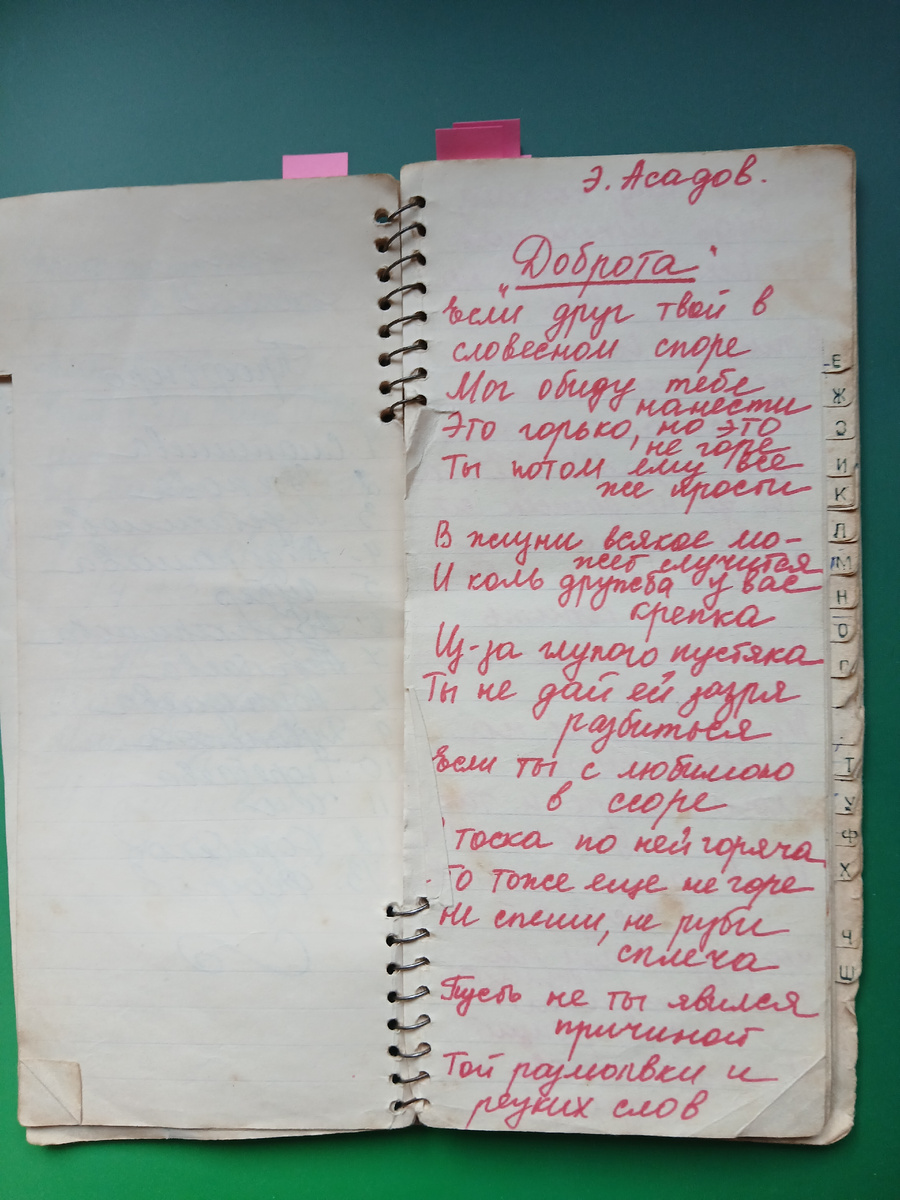 Э. Асадов.
"Доброта"
Если друг твой в
словесном споре
Мог обиду тебе
нанести
Это горько, но это
не горе
Ты потом ему все
же прости
В жизни всякое мо-
жет случится
И коль дружба у вас
крепка
Из-за глупого пустяка
Ты не дай ей зазря
разбиться
Если ты с любимою
в ссоре
тоска по ней горяча
То тоже еще не горе
Не спеши, не руби
сплеча
Пусть не ты явился
причиной
Той размолвки и
резких слов
Е
Ж
З
И
К
Л
М
Н
О
П
Т
У
Ф
Х
Ч
Ш